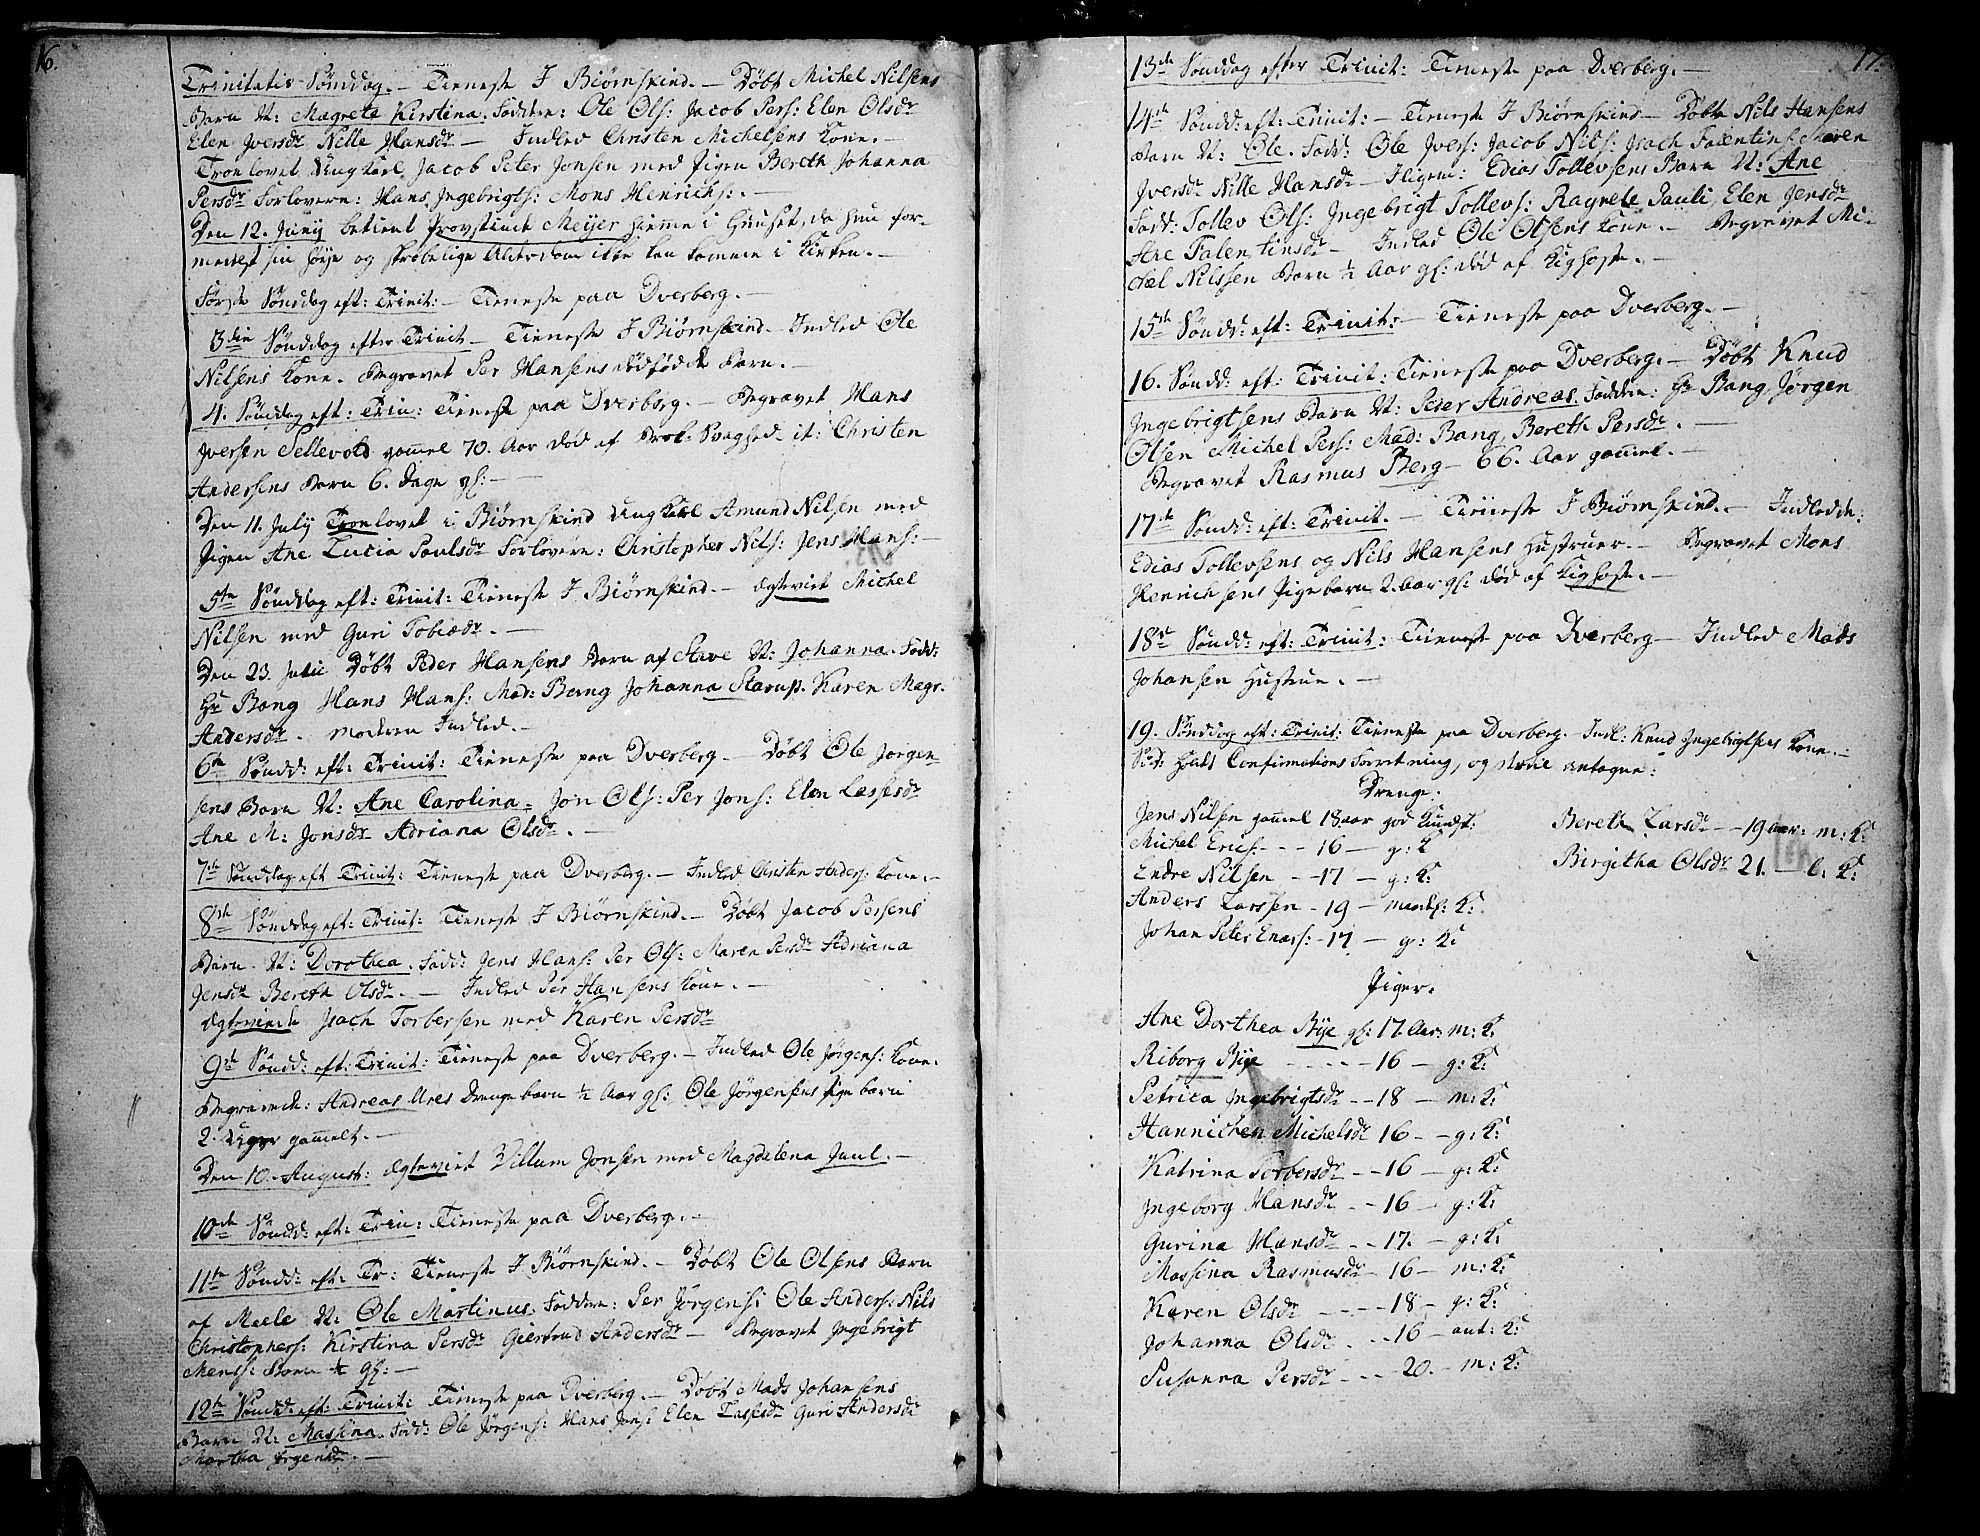 16.
Trinitatis Sönddag. – Tieneste I Biørnskind. – Døbt Michel Nilsens
Barn N: Magrete Kirstina. Faddere: Ole Ols: Jacob Pers: Elen Olsdr
Elen Iversdr Nille Hansdr – Indled Christen Michelsens Kone. –
Trolovet Ungkarl Jacob Peter Jonsen med Pigen Bereth Johanna
Persdr Forlovere: Hans Ingebrigts: Mons Henrichs: –
Den 12. Junij betient Provstinde Meijer hiemme i Huuset, da hun for-
medelst sin høye og skrøbelige Alderdom ikke kan komme i Kirken. –
Første Sönddag eft: Trinit: – Tieneste paa Dverberg. –
3die Sönddag efter Trinit – Tieneste I Biørnskind – Indled Ole
Nilsens Kone. Begravet Per Hansens dødfødde Barn. –
4. Sönddag eft: Trin: Tieneste paa Dverberg. – Begravet Hans
Iversen Sellevold gamel 70. Aar død af Svaghed it: Christen
Andersens Barn 6. Dage gl: –
Den 11. July Trolovet i Biørnskind Ungkarl Amund Nilsen med
Pigen Ane Lucia Paulsdr Forlovere: Christopher Nils: Jens Hans: –
5te Sönddag eft: Trinit: Tieneste I Biørnskind. – Ægteviet Michel
Nilsen med Guri Tobiædr. –
Den 23. Julii Døbt Peder Hansens Barn af Stave N: Johanna. Fadd:
Hr Bang Hans Hans: Mad: Bang Johanna Starup. Karen Magr.
Andersdr. Moderen Indled. –
6te Søndd: eft: Trinit: Tieneste paa Dverberg – Døbt Ole Jorgen-
sens Barn N: Ane Carolina. Jon Ols: Per Jons: Elen Lassesdr
Ane M: Jonsdr Adriana Olsdr. –
7de Sönddag eft Trinit: Tieneste paa Dverberg. – Indled Christen Anders: Kone. –
8de Sönddag eft: Trinit: Tieneste I Biørnskind. – Døbt Jacob Persens
Barn. N: Dorothea. Fadd: Jens Hans: Per Ols: Maren Persdr Adriana
Jensdr Bereth Olsdr. – Indled Per Hansens Kone. –
Ægteviede Isach Torbersen med Karen Persdr
9de Søndd: eft: Trinit: Tieneste paa Dverberg. – Indled Ole Jørgens: Kone.
Begravede: Andreas Ures Drenge barn ½ Aar gl: Ole Jørgensens Pige barn
2. Uger gamelt. –
Den 10. August: Ægteviet Villum Jonsen med Magdalena Juul. –
10de Søndd: eft: Trin: Tieneste paa Dverberg. –
11te Søndd: eft: Tr: Tieneste I Biørnskind. – Døbt Ole Olsens Barn
af Meele N: Ole Martinus. Faddere: Per Jørgens: Ole Anders: Nils
Christophers: Kirstina Persdr Giertrud Andersdr – Begravet Ingebrigt
Mons: Barn gl: –
12te Søndd: eft: Trinit: Tieneste paa Dverberg. – Døbt Mads Johansens
Barn N: Massina. Fadd: Ole Jørgens: Hans Jons: Elen Lassesdr Guri Andersdr
Martha Jrgensdr. –
17.
13de Sönddag efter Trinit: Tieneste paa Dverberg. –
14de Søndd: eft: Trinit: – Tieneste I Biørnskind – Døbt Nils Hansens
Barn N: Ole. Fadd: Ole Ivers: Jacob Nils: Isach Falentins: Maren
Iversdr Nille Hansdr – Iligem: Edias Tollevsens Barn N: Ane
Fadd: Tollev Ols: Ingebrigt Tollevs: Ragnele Pauli, Elen Jensdr
Ane Falentinsdr – Indled Ole Olsens Kone. – Begravet Mi-
chel Nilssen Barn ½ Aar gl: død af Kighoste. –
15de Søndd: eft: Trinit: – Tieneste paa Dverberg. –
16. Søndd: eft: Trinit: Tieneste paa Dverberg. – Døbt Knud
Ingebrigtsens Barn N: Peder Andreas. Faddere: Hr Bang, Jørgen
Olsen Michel Pers: Mad: Bang, Bereth Persdr. –
Begravet Rasmus Berg – 66. Aar gamel. –
17de Søndd: eft: Trinit. – Tieneste I Biørnskind. – Indledde:
Edias Tollevsens og Nils Hansens Hustruer. – Begravet Mons
Henrichsens Pige barn 2. Aar gl: død af Kighoste. –
18de Søndd: eft: Trinit: Tieneste paa Dverberg – Indled Mads
Johansen Hustrue. –
19. Sönddag eft: Trinit: Tieneste paa Dverberg. Indl: Knud Ingebrigtsens Kone. –
Holdt Confirmations Forretning, og antagne:
Drenge:
Jens Nilsen gamel 18. aar god Kundsk:
Michel Erics: - - - 16 – g: K
Endre Nilsen - - 17 – g: K:
Anders Larssen - 19 – K:
Johan Peter Enars: - 17 – g: K:
Bereth Larsdr - - 19 aar: m: K:
Birgitha Olsdr 21. – l: K:
Piger.
Ane Dorthea Bije gl: 17. Aar: m: K:
Riborg Bije - - - - - 16 – g: K:
Petrica Ingebrigtsdr - - 18 – m: K:
Hannichen Michelsdr 16 - – g: K:
Katrina Torbersdr - - 16 – g: K:
Ingeborg Hansdr - - 16 – g: K:
Gurina Hansdr - - 17. – g: K:
Massina Rasmusdr - 16 – m: K:
Karen Olsdr - - - - 18 – g: K:
Johanna Olsdr. - - 16 – ant: K:
Susanna Persdr - - - 20. – m: K: